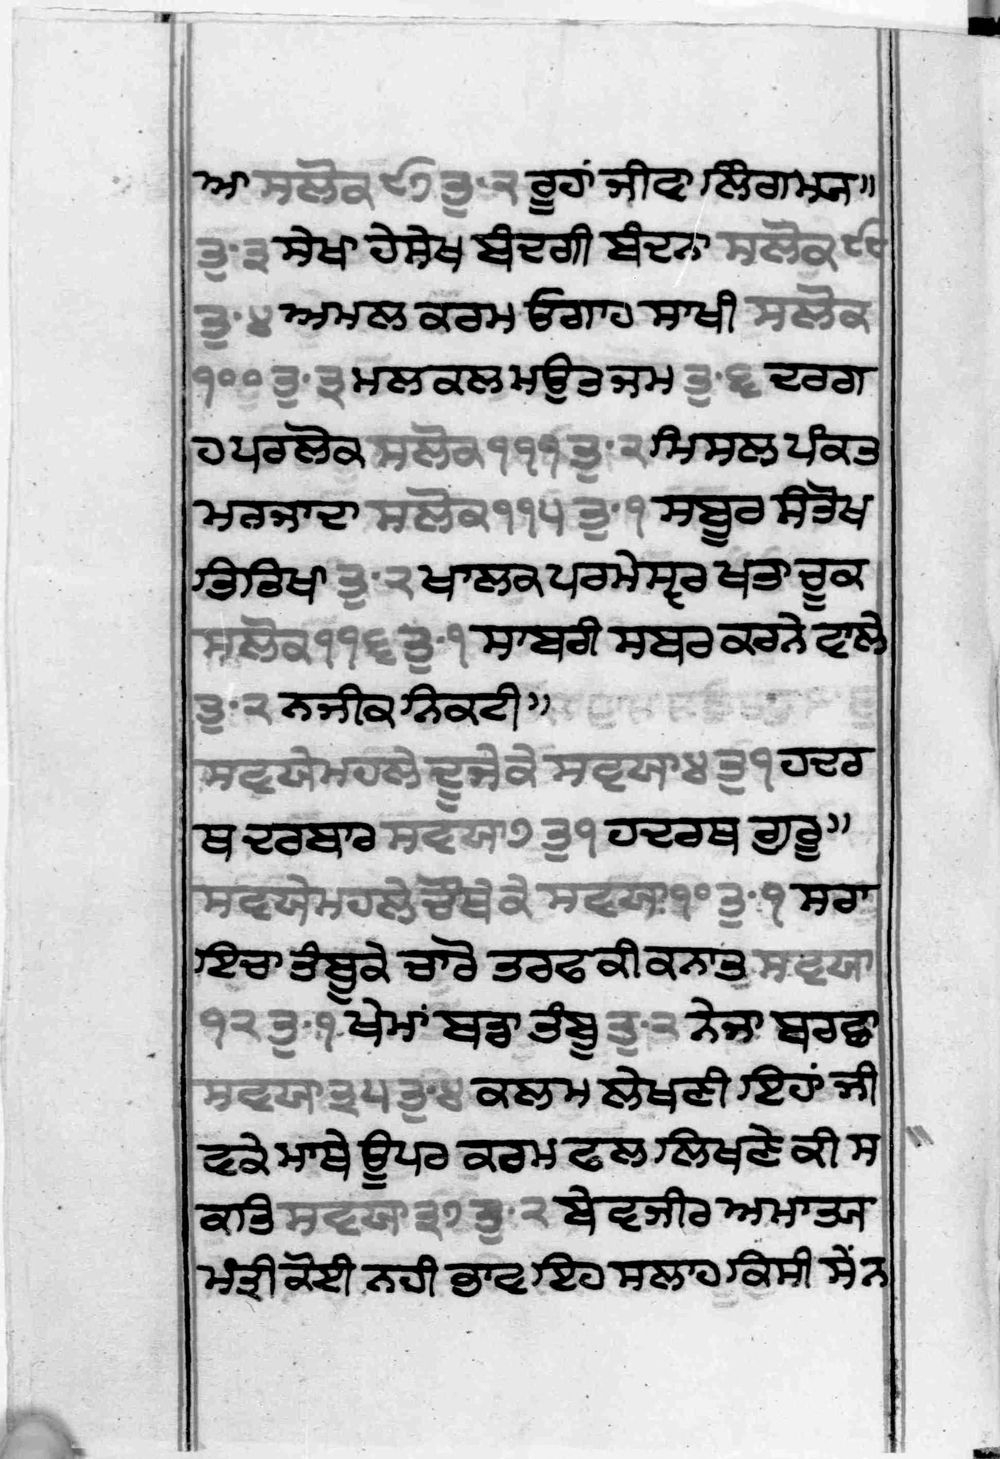 ਆ ਸਲੋਕ ੯੭ ਤੁ·੨ ਰੂਹਾਂ ਜੀਵਾ ਲਿੰਗਮਯ॥
ਤੁ·੩ ਸੇਖਾ ਹੇਸ਼ੇਖ ਬੰਦਗੀ ਬੰਦਨਾ ਸਲੋਕ ੯੯
ਤੁ·੪ ਅਮਲ ਕਰਮ ਓਗਾਹ ਸਾਖੀ ਸਲੋਕ
੧੦੦ ਤੁ·੩ ਮਲਕਲ ਮਉਤ ਜਮ ਤੁ·੬ ਦਰਗ
ਹ ਪਰਲੋਕ ਸਲੋਕ ੧੧੧ ਤੁ·੨ ਮਿਸਲ ਪੰਕਤ
ਮਰਜਾਦਾ ਸਲੋਕ ੧੧੫ ਤੁ·੧ ਸਬੂਰ ਸੰਤੋਖ
ਤਿਤਿਖਾ ਤੁ·੨ ਖਾਲਕ ਪਰਮੇਸ੍ਵਰ ਖਤਾ ਚੂਕ
ਸਲੋਕ ੧੧੬ ਤੁ·੧ ਸਾਬਰੀ ਸਬਰ ਕਰਨੇ ਵਾਲੇ
ਤੁ·੨ ਨਜੀਕ ਨਿਕਟੀ॥
ਸਵਯੇ ਮਹਲੇ ਦੂਜੇ ਕੇ ਸਵਯਾ ੪ ਤੁ੧ ਹਦਰ
ਥ ਦਰਬਾਰ ਸਵਯਾ ੭ ਤੁ੧ ਹਦਰਥ ਗੁਰੂ॥
ਸਵਯੇ ਮਹਲੇ ਚੌਥੇ ਕੇ ਸਵਯਾ ੧੦ ਤੁ·੧ ਸਰਾ
ਇਚਾ ਤੰਬੂ ਕੇ ਚਾਰੋ ਤਰਫ ਕੀ ਕਨਾਤ ਸਵਯਾ
੧੨ ਤੁ·੧ ਖੇਮਾਂ ਬਡਾ ਤੰਬੂ ਤੁ·੨ ਨੇਜਾ ਬਰਛਾ
ਸਵਯਾ ੩੫ ਤੁ·੪ ਕਲਮ ਲੇਖਣੀ ਇਹਾਂ ਜੀ
ਵਕੇ ਮਾਥੇ ਊਪਰ ਕਰਮ ਫਲ ਲਿਖਣੇ ਕੀ ਸ
ਕਤਿ ਸਵਯਾ ੩੭ ਤੁ·੨ ਬੇ ਵਜੀਰ ਅਮਾਤਯ
ਮੰਤ੍ਰੀ ਕੋਈ ਨਹੀ ਭਾਵ ਇਹ ਸਲਾਹ ਕਿਸੀ ਸੇਂ ਨ